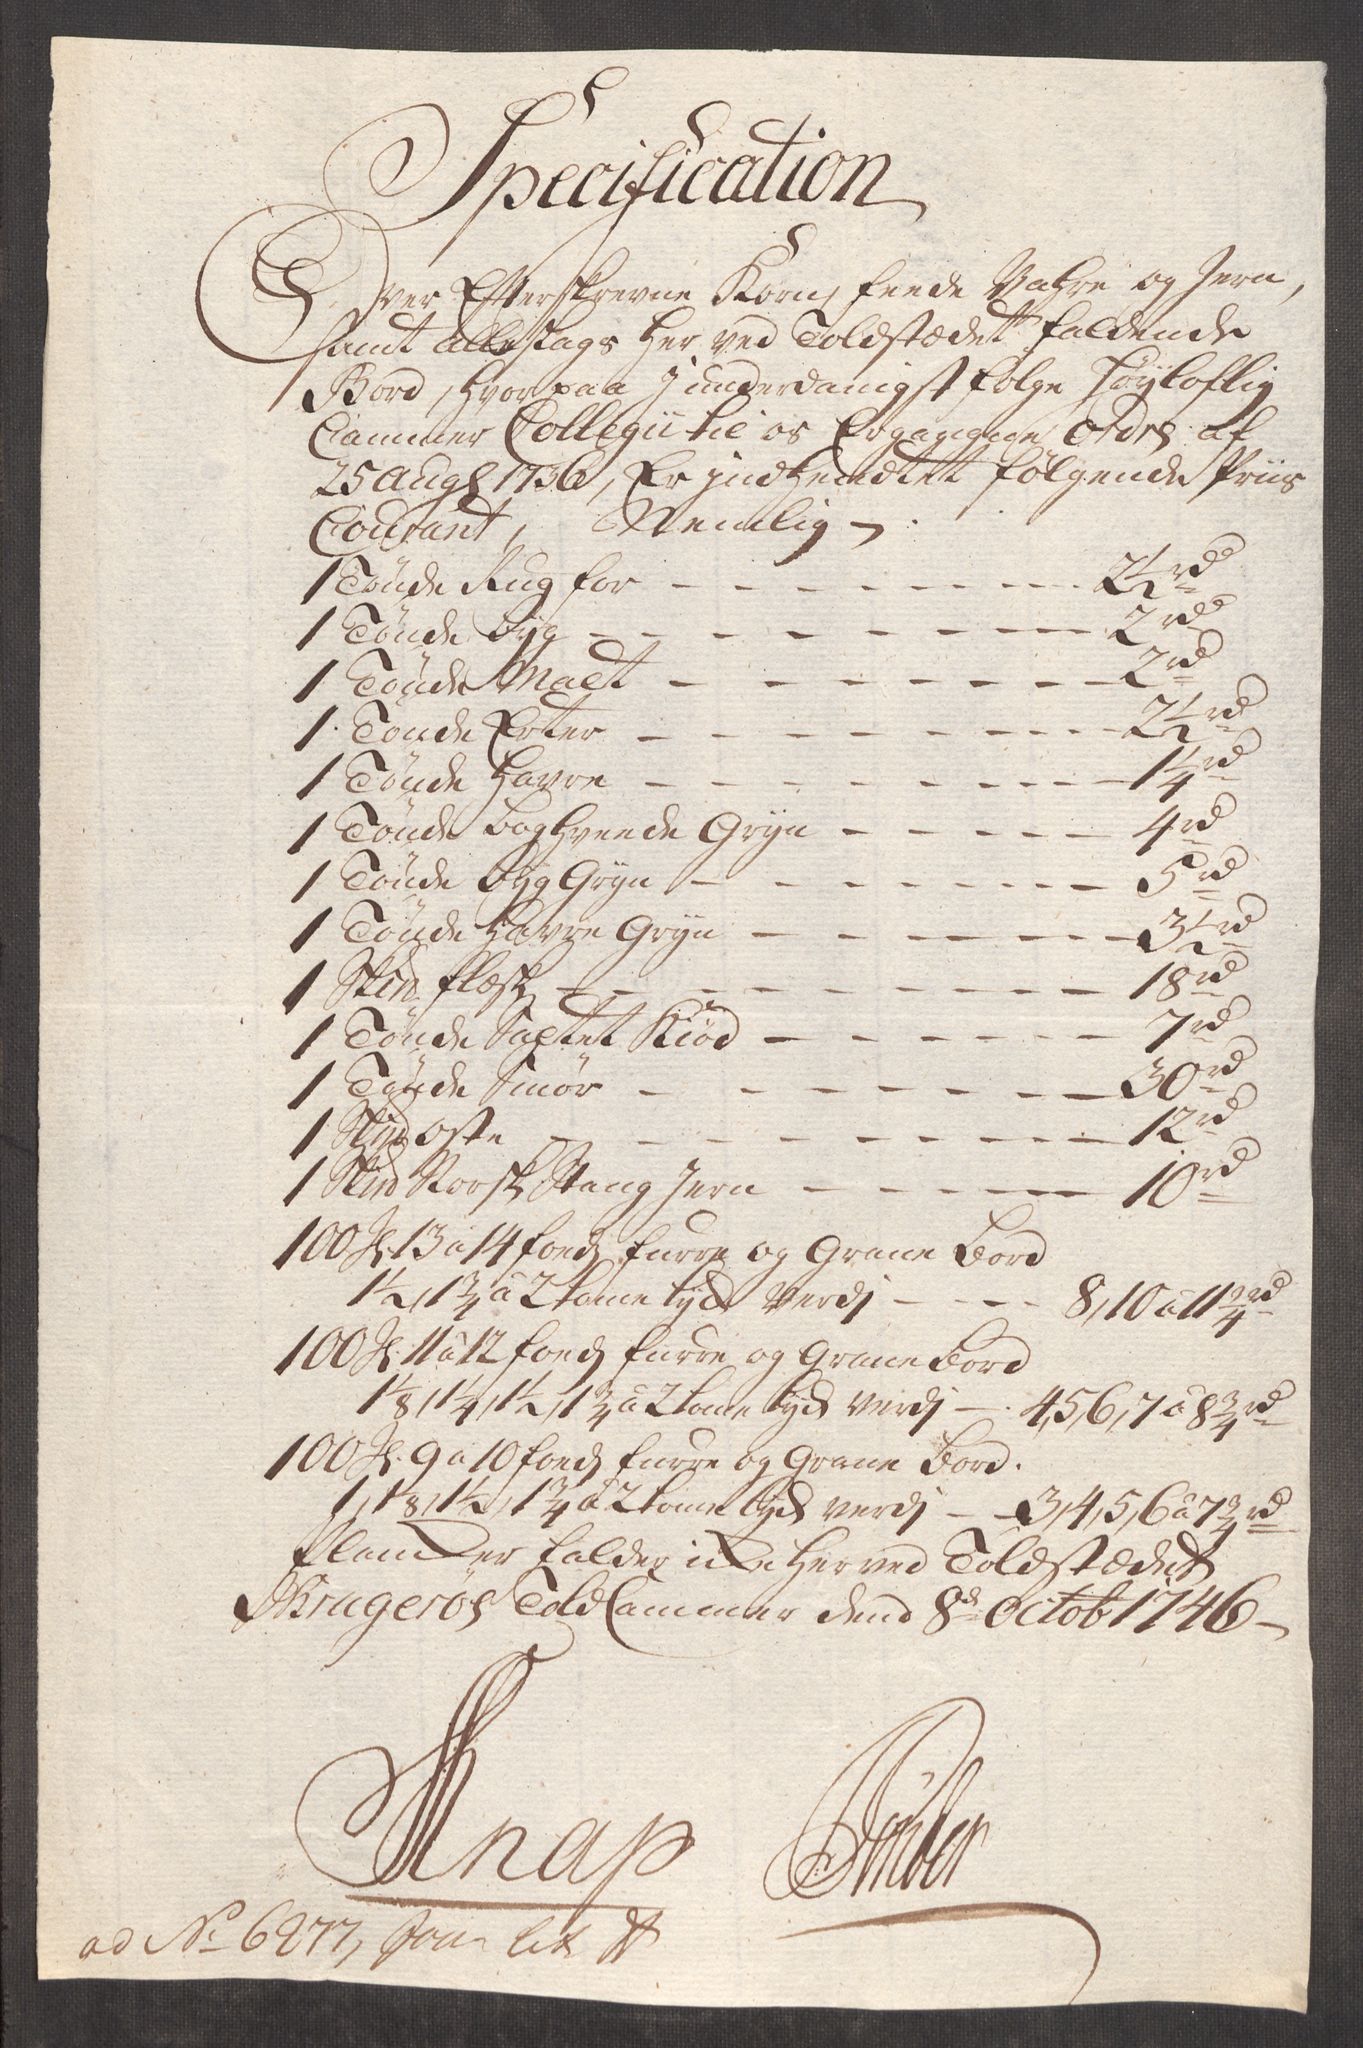 Specification
Over Efterskrevne Korn, feede Vahre og Jern,
samt alleslags her ved Toldstædet faldende
Bord, hvorpaa J underdanigst følge Høyloflig
Cammer Collegii til os Ergangne Ordre af
25 Aug 1736, Er indhendtet følgende Priis
Courant, Nemlig
1 Tønde Rug for - - - 2 1/2 rd
1 Tønde byg - - - 2 rd
1 Tønde Malt - - - 2 rd
1 Tønde Erter - - - 2 1/2 rd
1 Tønde Havre - - - 1 1/4 rd
1 Tønde boghvede Gryn - - - 4 rd
1 Tønde byg Gryn - - - 5 rd
1 Tønde Havre Gryn - - - 3 1/2 rd
1 Skud flesk - - - 18 rd
1 Tønde Saltet Kiød - - - 7 rd
1 Tønde Smør - - - 30 rd
1 Skud oste - - - 12 rd
1 Skud Norsk Stang Jern - - - 10 rd
100 St. 13 a 14 foeds furre og Grane Bord
1 1/2, 1 3/4 a 2 tome tyk Verdj - - - 8, 10 a 11 3/4 rd
100 St. 11 a 12 foeds furre og Grane Bord
1 1/8, 1 1/4, 1 1/2, 1 3/4 a 2 tome tyk Verdj - 4, 5, 6, 7 a 8 3/4 rd
100 St. 9 a 10 foeds furre og Grane Bord.
1, 1 1/8, 1 1/2, 1 3/4 a 2 tome tyk verdj - - 3, 4, 5, 6 a 7 3/4 rd
falder icke her ved Toldstædet
Kragerøes Told Cammer dend 8de Octob 1746
Knap
ad No 6277, Lit A